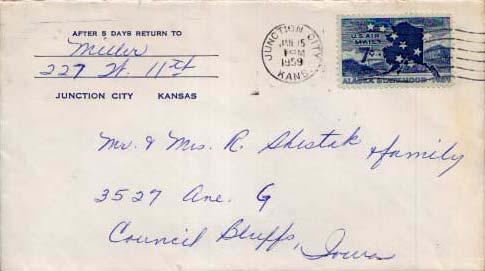 AFTER 5 DAYS RETURN TO
Miller
227 W. 11st
JUNCTION CITY KANSAS
JUNCTION CITY
JUN 15
PM
1959
KANS.
U.S. AIR MAIL
7¢
ALASKA STATEHOOD
Mr. & Mrs. R. Shestak & family
3527 Ave. G
Council Bluffs, Iowa